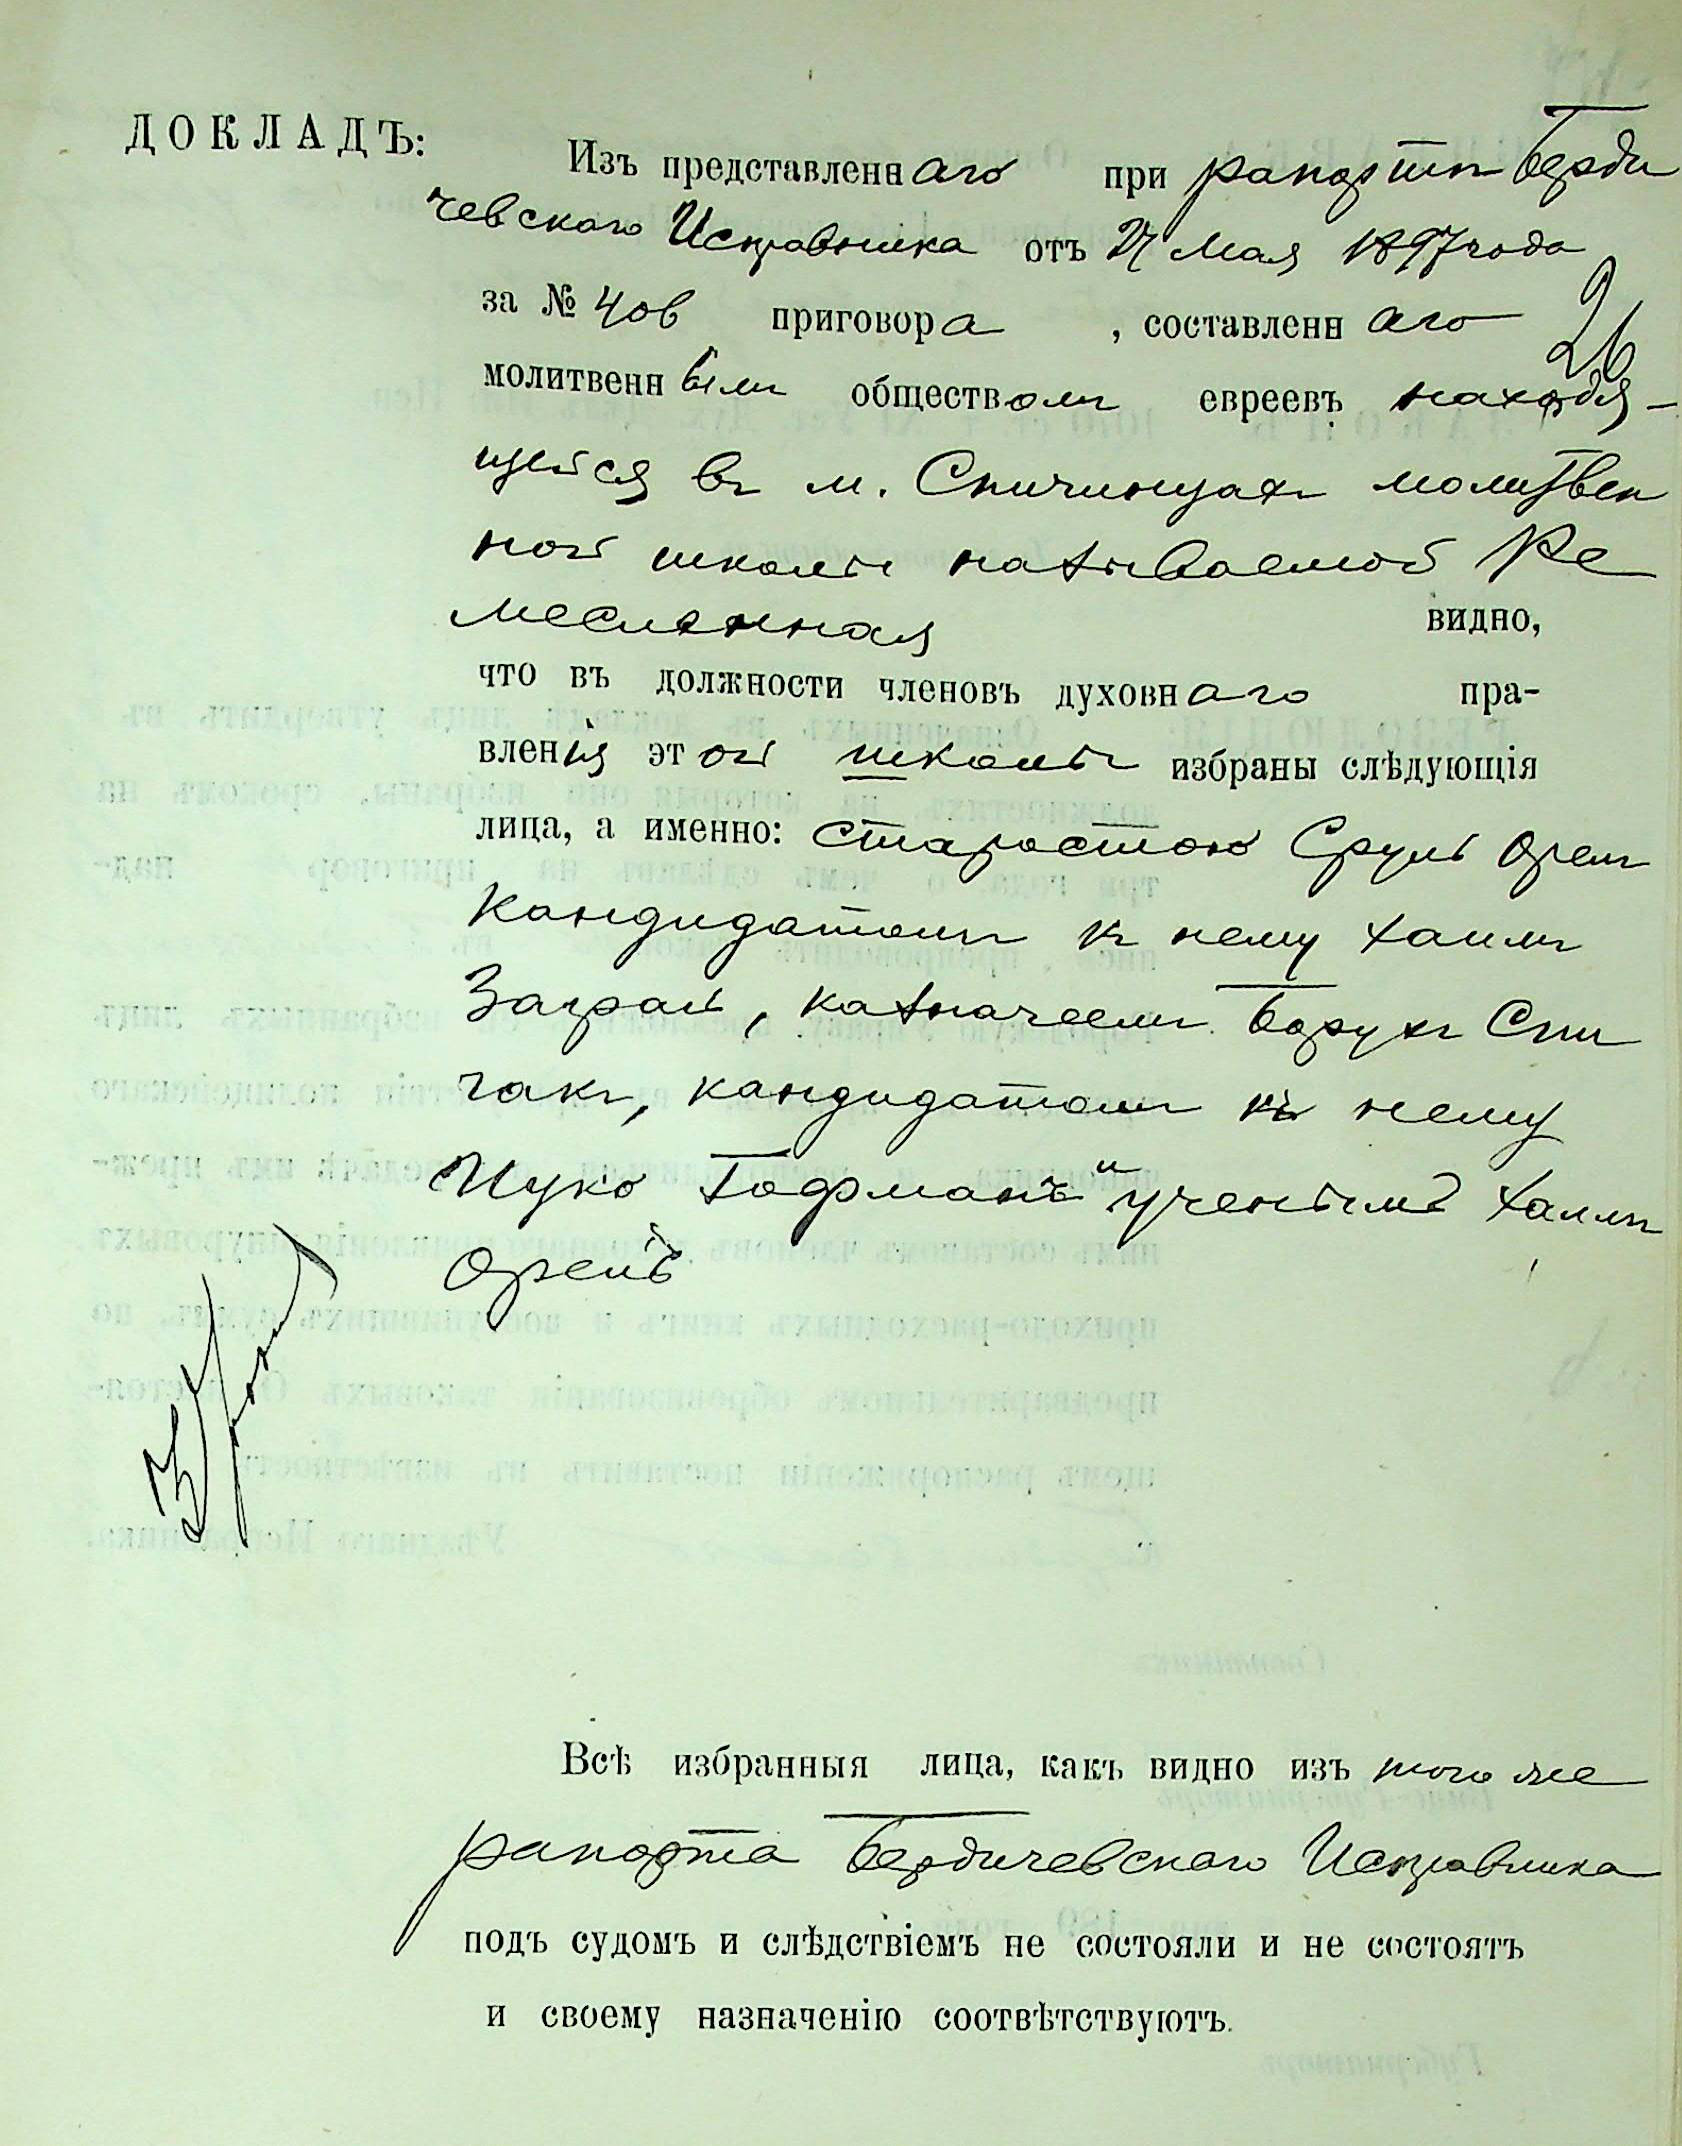 ДОКЛАДЪ:
Изъ представленнаго при рапортѣ Берди
чевскаго Исправника отъ 27 Мая 1897 года
за № 406 приговора, составленнаго
26
молитвеннымъ обществомъ евреевъ находя-
щейся въ м. Спичинцахъ молитвен
ной школы называемой Ре
месленная видно,
что въ должности членовъ духовнаго пра-
вленія этой школы избраны слѣдующія
лица, а именно: старостою Сруль Орел
Кандидатомъ къ нему Хаимъ
Заграй, казначеемъ Борухъ Спи
чакъ, кандидатомъ къ нему
Ицко Гофманъ и ученымъ Хаимъ
Всѣ избранныя лица, какъ видно изъ того же
рапорта Бердичевскаго Исправника
подъ судомъ и слѣдствіемъ не состояли и не состоятъ
и своему назначенію соотвѣтствуютъ.